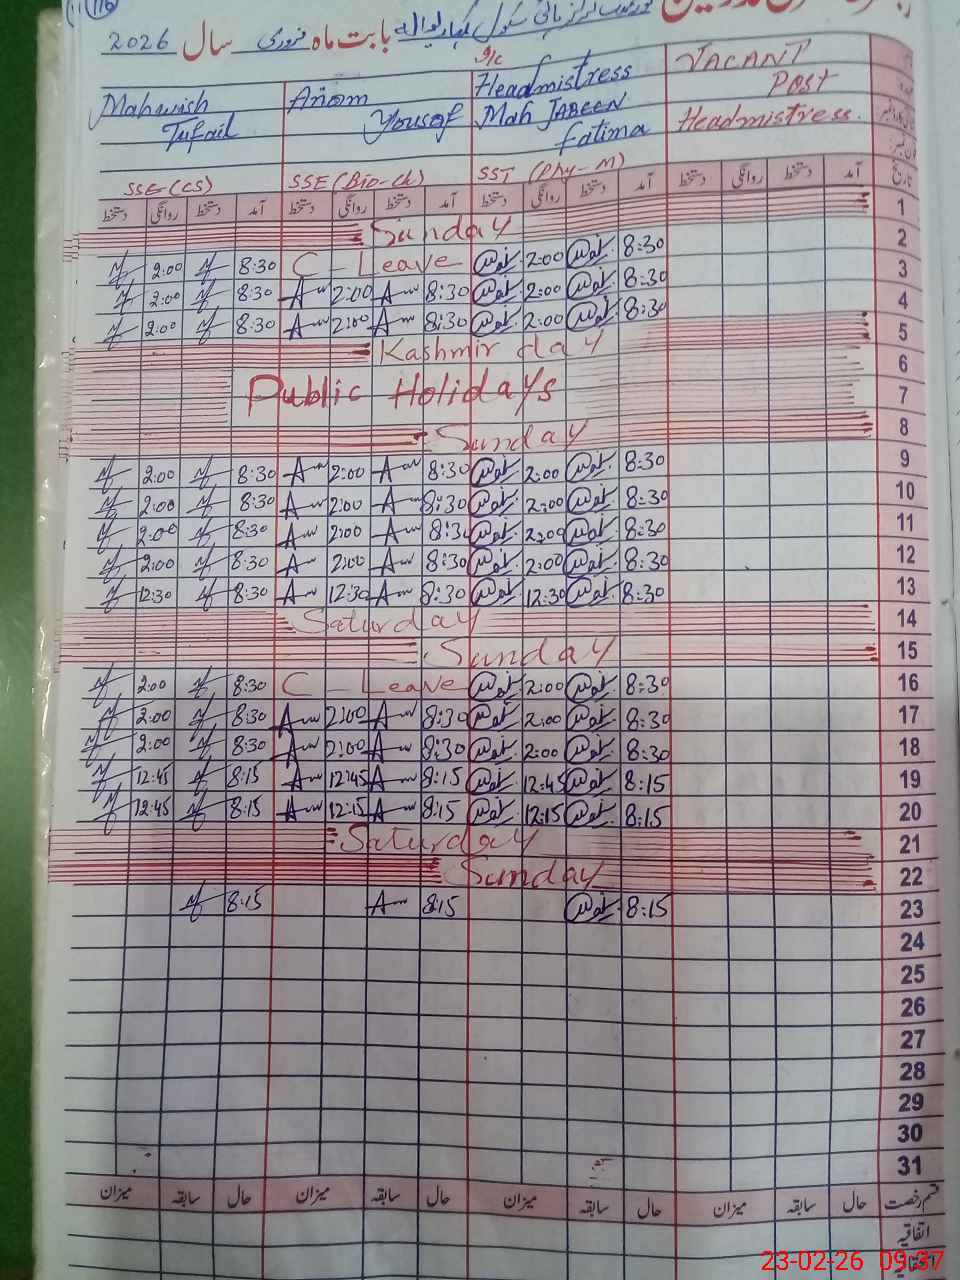 116
بابت ماہ فروری سال 2026
Mahwish Tufail
Anam Yousaf
I/c Headmistress Mah JABEEN Fatima
VACANT Post Headmistress.
SSE (CS) SSE (Bio-Ch) SST (Phy-M)
تاریخ آمد دستخط روانگی دستخط آمد دستخط روانگی دستخط آمد دستخط روانگی دستخط آمد دستخط روانگی دستخط
Sunday 1
2:00 8:30 C - Leave 2:00 8:30 2
2:00 8:30 2:00 8:30 2:00 8:30 3
2:00 8:30 2:00 8:30 2:00 8:30 4
Kashmir day 5
6
Public Holidays 7
Sunday 8
2:00 8:30 2:00 8:30 2:00 8:30 9
2:00 8:30 2:00 8:30 2:00 8:30 10
2:00 8:30 2:00 8:30 2:00 8:30 11
2:00 8:30 2:00 8:30 2:00 8:30 12
12:30 8:30 12:30 8:30 12:30 8:30 13
Saturday 14
Sunday 15
2:00 8:30 C - Leave 2:00 8:30 16
2:00 8:30 2:00 8:30 2:00 8:30 17
2:00 8:30 2:00 8:30 2:00 8:30 18
12:45 8:15 12:45 8:15 12:45 8:15 19
12:45 8:15 12:15 8:15 12:15 8:15 20
Saturday 21
Sunday 22
8:15 8:15 8:15 23
24
25
26
27
28
29
30
31
قسم رخصت حال سابقہ میزان حال سابقہ میزان حال سابقہ میزان حال سابقہ میزان
اتفاقیہ
23-02-26 09:37